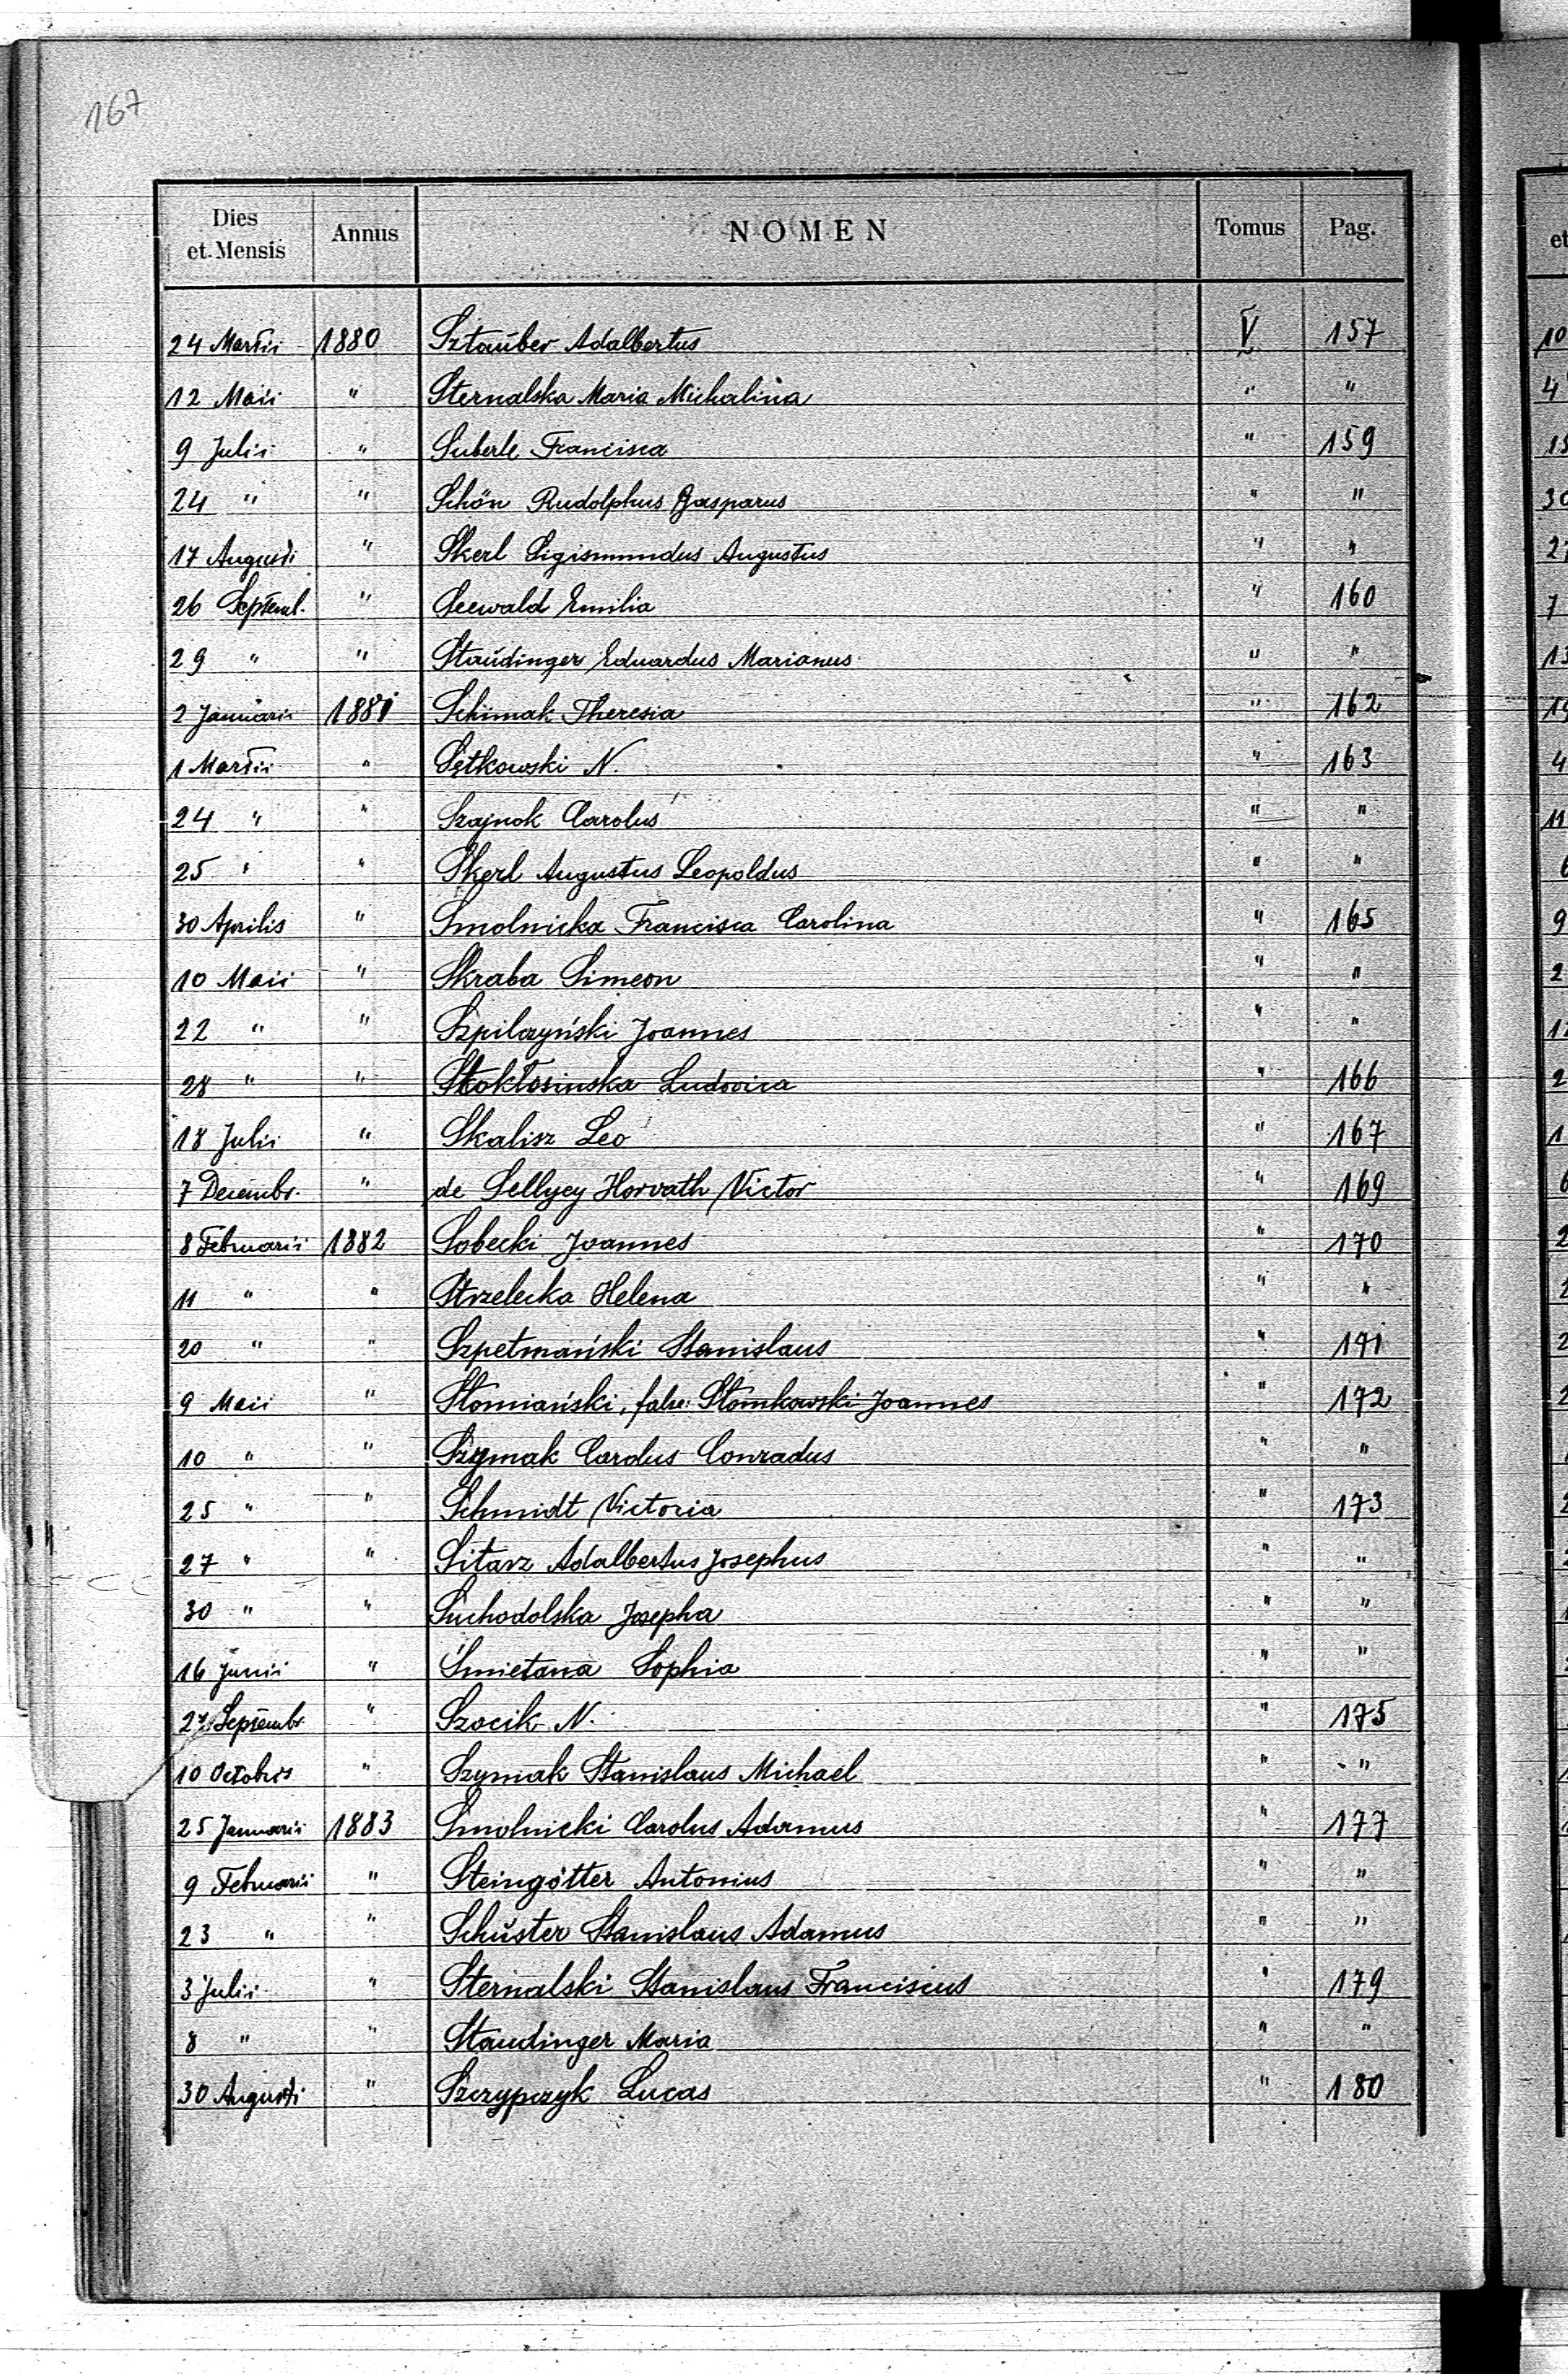 167
Dies et Mensis Annus NOMEN Tomus Pag.
24 Martii 1880 Sztaüber Adalbertus V 157
12 Maii " Sternalska Maria Michalina " "
9 Julii " Suberle Francisca " 159
24 " " Schön Rudolphus Gasparus " "
17 Augusti " Skerl Sigismundus Augustus " "
26 Septemb. " Seewald Emilia " 160
29 " " Staŭdinger Eduardus Marianus " "
2 Januarii 1881 Schimak Theresia " 162
1 Martii " Sętkowski N. " 163
24 " " Szajnok Carolus " "
25 " " Skerl Augustus Leopoldus " "
30 Aprilis " Smolnicka Francisca Carolina " 165
10 Maii " Skraba Simeon " "
22 " " Szpilczyński Joannes " "
28 " " Stokłosinska Ludovica " 166
18 Julii " Skalisz Leo " 167
7 Decembr. " de Sellyey Horvath Victor " 169
8 Februarii 1882 Sobecki Joannes " 170
11 " " Strzelecka Helena " "
20 " " Szpetmański Stanislaus " 171
9 Maii " Słomiański, false: Słomkowski Joannes " 172
10 " " Szymak Carolus Conradus " "
25 " " Schmidt Victoria " 173
27 " " Sitarz Adalbertus Josephus " "
30 " " Suchodolska Josepha " "
16 Junii " Śmietana Sophia " "
27 Septembr. " Szocik N. " 175
10 Octobris " Szymak Stanislaus Michael " "
25 Januarii 1883 Smolnicki Carolus Adamus " 177
9 Februarii " Steingötter Antonius " "
23 " " Schŭster Stanislaus Adamus " "
3 Julii " Sternalski Stanislaus Franciscus " 179
8 " " Staudinger Maria " "
30 Augusti " Szczypczyk Lucas " 180